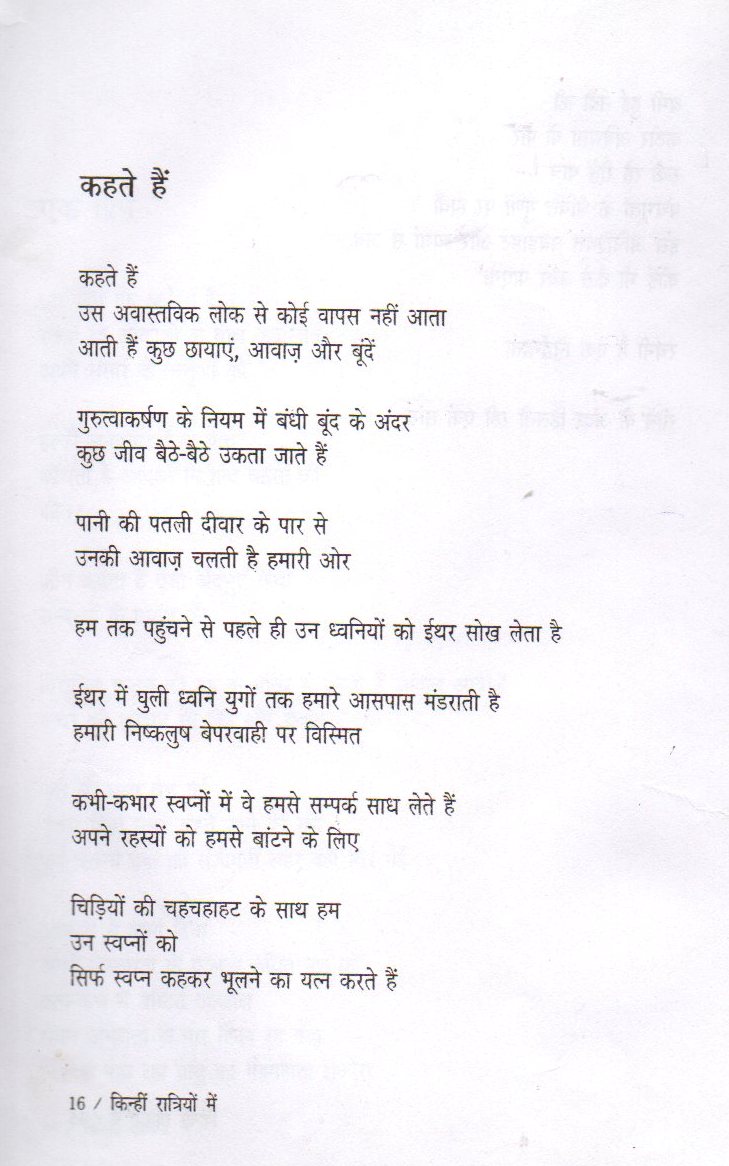 कहते हैं
कहते हैं
उस अवास्तविक लोक से कोई वापस नहीं आता
आती हैं कुछ छायाएं, आवाज़ और बूंदें
गुरुत्वाकर्षण के नियम में बंधी बूंद के अंदर
कुछ जीव बैठे-बैठे उकता जाते हैं
पानी की पतली दीवार के पार से
उनकी आवाज़ चलती है हमारी ओर
हम तक पहुंचने से पहले ही उन ध्वनियों को ईथर सोख लेता है
ईथर में घुली ध्वनि युगों तक हमारे आसपास मंडराती है
हमारी निष्कलुष बेपरवाही पर विस्मित
कभी-कभार स्वप्नों में वे हमसे सम्पर्क साध लेते हैं
अपने रहस्यों को हमसे बांटने के लिए
चिड़ियों की चहचहाहट के साथ हम
उन स्वप्नों को
सिर्फ स्वप्न कहकर भूलने का यत्न करते हैं
16 / किन्हीं रात्रियों में